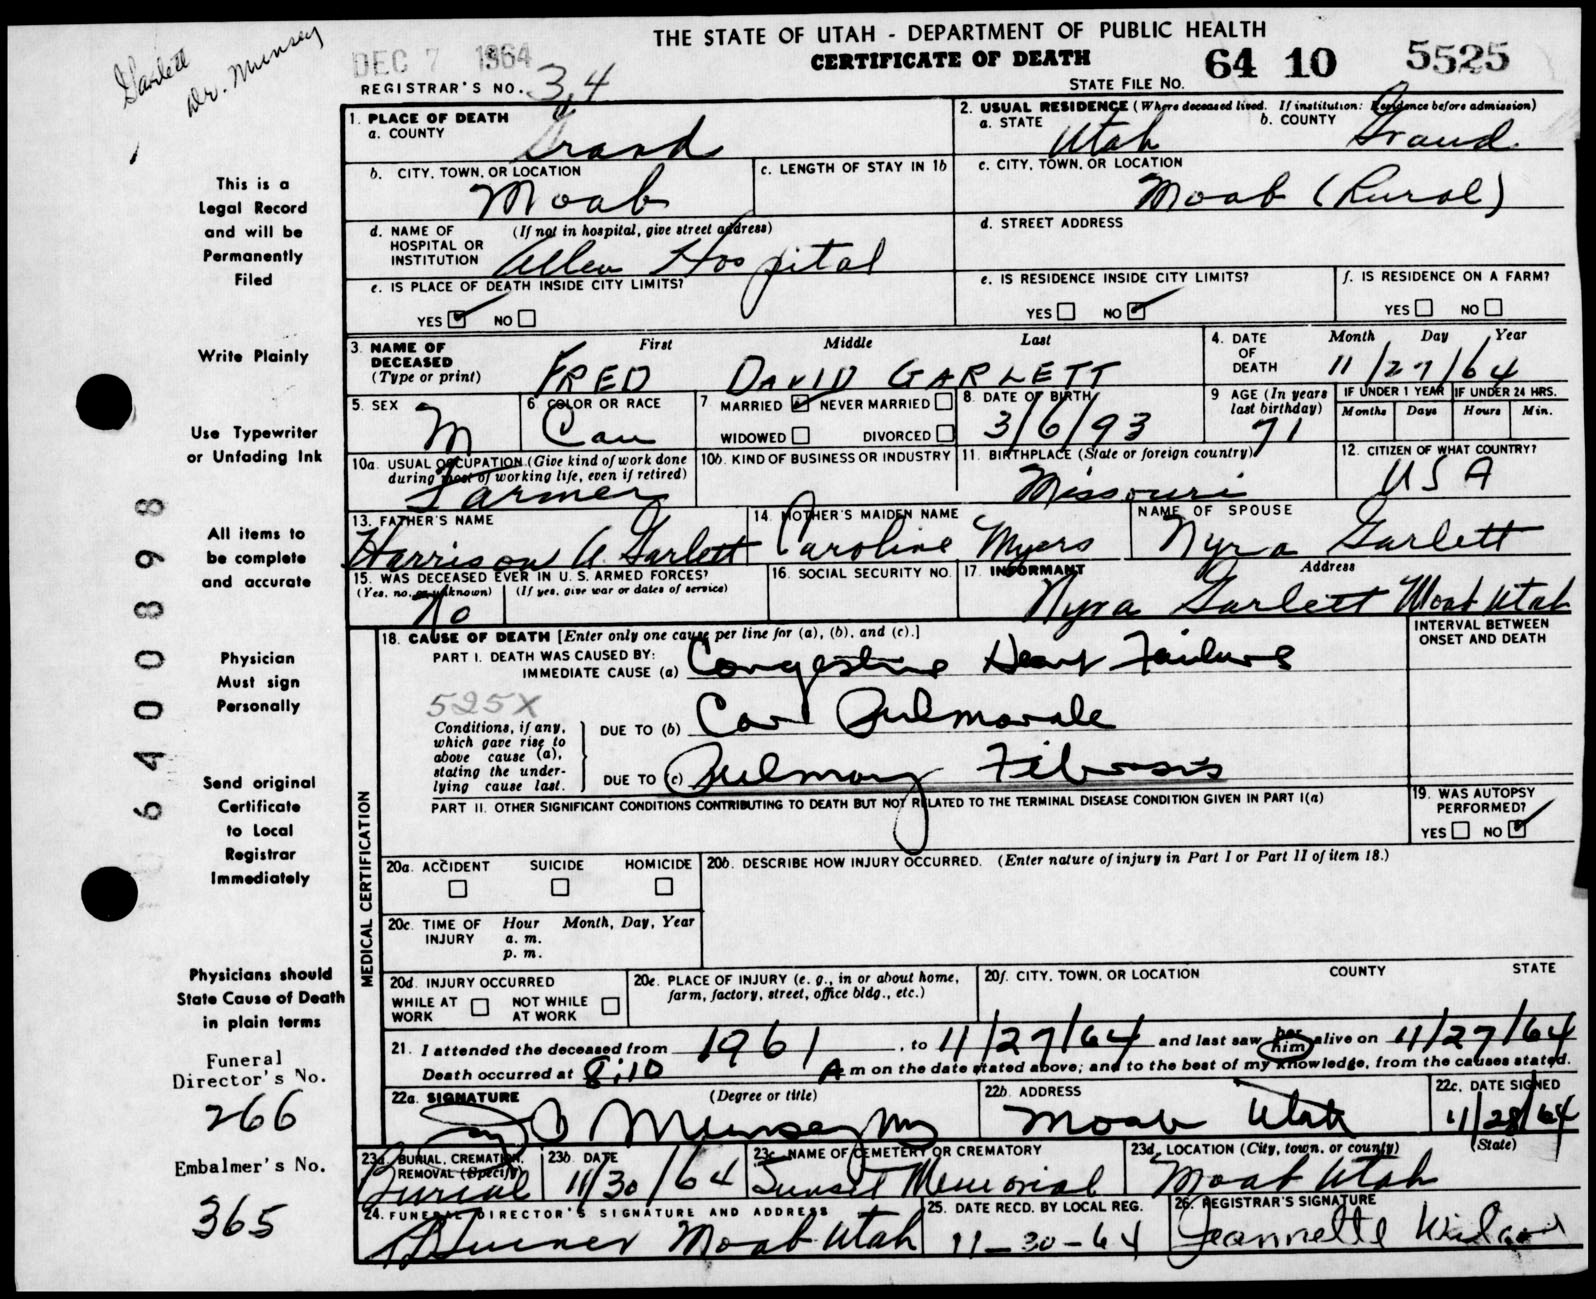 Garlett
Dr. Munsey
THE STATE OF UTAH - DEPARTMENT OF PUBLIC HEALTH
CERTIFICATE OF DEATH
DEC 7 1964
REGISTRAR'S NO. 34
STATE FILE NO. 64 10 5525
1. PLACE OF DEATH
a. COUNTY
Grand
2. USUAL RESIDENCE (Where deceased lived. If institution: Residence before admission)
a. STATE Utah b. COUNTY Grand
b. CITY, TOWN, OR LOCATION
Moab
c. LENGTH OF STAY IN 1b
c. CITY, TOWN, OR LOCATION
Moab (Rural)
d. NAME OF HOSPITAL OR INSTITUTION (If not in hospital, give street address)
Allen Hospital
d. STREET ADDRESS
e. IS PLACE OF DEATH INSIDE CITY LIMITS?
YES NO
e. IS RESIDENCE INSIDE CITY LIMITS?
YES NO
f. IS RESIDENCE ON A FARM?
YES NO
3. NAME OF DECEASED (Type or print)
First Middle Last
FRED DAVID GARLETT
4. DATE OF DEATH
Month Day Year
11/27/64
5. SEX
M
6 COLOR OR RACE
Cau
7 MARRIED NEVER MARRIED
WIDOWED DIVORCED
8. DATE OF BIRTH
3/6/93
9 AGE (In years last birthday)
71
IF UNDER 1 YEAR IF UNDER 24 HRS.
Months Days Hours Min.
10a. USUAL OCCUPATION (Give kind of work done during most of working life, even if retired)
Farmer
10b. KIND OF BUSINESS OR INDUSTRY
11. BIRTHPLACE (State or foreign country)
Missouri
12. CITIZEN OF WHAT COUNTRY?
USA
13. FATHER'S NAME
Harrison A. Garlett
14. MOTHER'S MAIDEN NAME
Caroline Myers
NAME OF SPOUSE
Nyra Garlett
15. WAS DECEASED EVER IN U.S. ARMED FORCES?
(Yes, no, or unknown) (If yes, give war or dates of service)
No
16. SOCIAL SECURITY NO.
17. INFORMANT Address
Nyra Garlett Moab Utah
MEDICAL CERTIFICATION
18. CAUSE OF DEATH [Enter only one cause per line for (a), (b), and (c).]
INTERVAL BETWEEN ONSET AND DEATH
PART I. DEATH WAS CAUSED BY:
IMMEDIATE CAUSE (a) Congestive Heart Failure
525X
Conditions, if any, which gave rise to above cause (a), stating the underlying cause last.
DUE TO (b) Cor Pulmonale
DUE TO (c) Pulmonary Fibrosis
PART II. OTHER SIGNIFICANT CONDITIONS CONTRIBUTING TO DEATH BUT NOT RELATED TO THE TERMINAL DISEASE CONDITION GIVEN IN PART I(a)
19. WAS AUTOPSY PERFORMED?
YES NO
20a. ACCIDENT SUICIDE HOMICIDE
20b. DESCRIBE HOW INJURY OCCURRED. (Enter nature of injury in Part I or Part II of item 18.)
20c. TIME OF INJURY Hour Month, Day, Year
a. m.
p. m.
20d. INJURY OCCURRED
WHILE AT WORK NOT WHILE AT WORK
20e. PLACE OF INJURY (e. g., in or about home, farm, factory, street, office bldg., etc.)
20f. CITY, TOWN, OR LOCATION COUNTY STATE
21. I attended the deceased from 1961, to 11/27/64 and last saw her him alive on 11/27/64
Death occurred at 8:10 A m on the date stated above; and to the best of my knowledge, from the causes stated.
22a. SIGNATURE (Degree or title)
Munsey MD
22b. ADDRESS
Moab Utah
22c. DATE SIGNED
11/28/64
23a. BURIAL, CREMATION, REMOVAL (Specify)
Burial
23b DATE
11/30/64
23c. NAME OF CEMETERY OR CREMATORY
Sunset Memorial
23d. LOCATION (City, town, or county) (State)
Moab Utah
24. FUNERAL DIRECTOR'S SIGNATURE AND ADDRESS
Moab Utah
25. DATE RECD. BY LOCAL REG.
11-30-64
26. REGISTRAR'S SIGNATURE
Jeannette Wilson
This is a
Legal Record
and will be
Permanently
Filed
Write Plainly
Use Typewriter
or Unfading Ink
All items to
be complete
and accurate
Physician
Must sign
Personally
Send original
Certificate
to Local
Registrar
Immediately
Physicians should
State Cause of Death
in plain terms
Funeral
Director's No.
266
Embalmer's No.
365
6400898